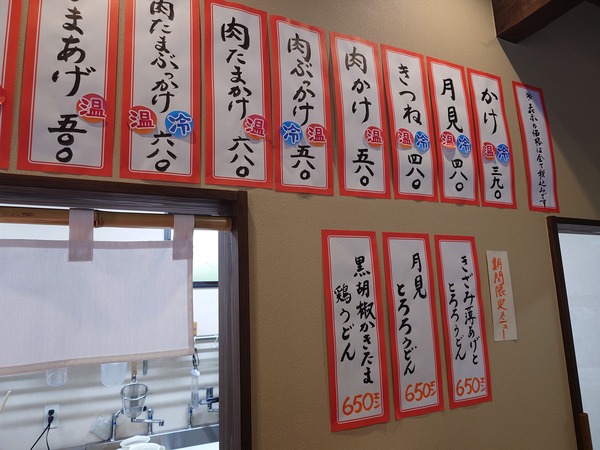 ※表示の価格は全て税込みです
かけ 温 冷 三九〇
月見 温 冷 四八〇
きつね 温 冷 四八〇
肉かけ 温 五八〇
肉ぶっかけ 冷 温 五八〇
肉たまかけ 温 六八〇
肉たまぶっかけ 温 冷 六八〇
まあげ 温 五〇〇
期間限定メニュー
きざみ薄あげと
とろろうどん
650円
月見
とろろうどん
650円
黒胡椒かきたま
鶏うどん
650円